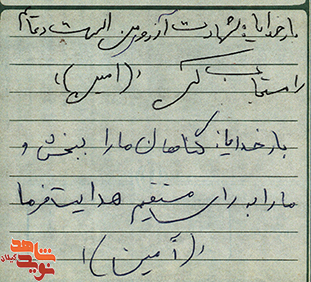 بارخدایا: شهادت آرزوی من است دعایم
را مستجاب کن ((امین))
بارخدایا: گناهان ما را ببخش و
ما را به راه مستقیم هدایت فرما
((آمین))
نوید شاهد
گیلان